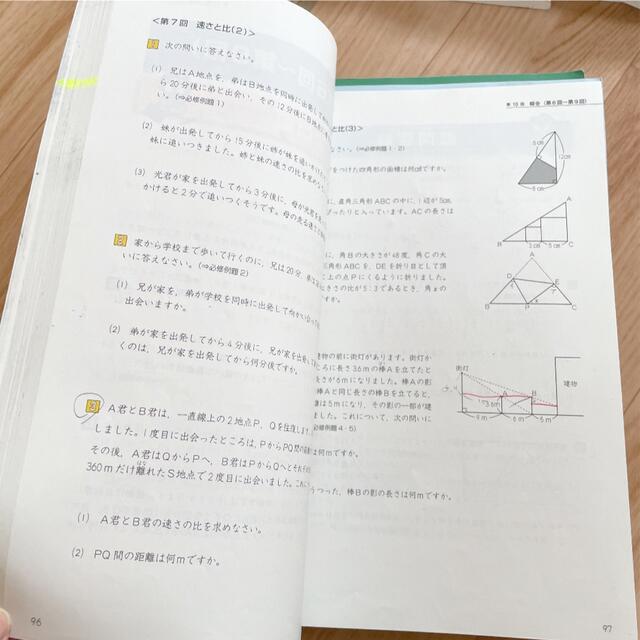 <第7回 速さと比(2)>
1 次の問いに答えなさい。
(1) 兄はA地点を、弟はB地点を同時に出発
ら20分後に弟と出会い、その12分後にB地点
た。(⇒必修例題1)
(2) 妹が出発してから15分後に姉が妹を追いかけ
妹に追いつきました。姉と妹の速さの比を求め
(3) 光君が家を出発してから3分後に、母が
かけると2分で追いつくそうです。母の走る速
2 家から学校まで歩いて行くのに、兄は20分、弟は
いに答えなさい。(⇒必修例題2)
(1) 兄が家を、弟が学校を同時に出発して向かい
出会いますか。
(2) 弟が家を出発してから4分後に、兄が家を出
くのは、兄が家を出発してから何分後ですか。
3 A君とB君は、一直線上の2地点P、Qを往復
しました。1度目に出会ったところは、PからPQ間の
その後、A君はQからPへ、B君はPからQへとそれぞれ
360mだけ離れたS地点で2度目に出会いました。
はな
(1) A君とB君の速さの比を求めなさい。
(2) PQ間の距離は何mですか。
96
第10回 総合(第6回〜第9回)
と比(3)>
なさい。(⇒必修例題1・2)
をつけた四角形の面積は何cm²ですか。
に、直角三角形ABCの中に、1辺が5cm、
ぴったりと入っています。ACの長さは
に、角Bの大きさが48度、角Cの大
角形ABCを、DEを折り目として頂
上の点Pにくるように折りました。
大きさの比が5:3であるとき、角xの
すか。
建物の前に街灯があります。街灯か
ろに長さ3.6mの棒Aを立てたと
長さが6mになりました。棒Aの影
棒Aと同じ長さの棒Bを立てると、
は5mになり、その影の一部が建
ました。これについて、次の問いに
必修例題4・5)
は何mですか。
うつった、棒Bの影の長さは何mですか。
5cm
12cm
5cm
A
B
3cm
5cm
C
A
D
E
B
P
C
街灯
建物
A
B
9m
6m
5m
97